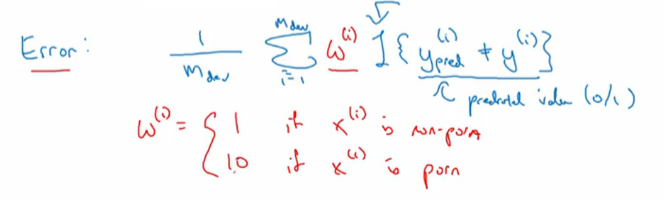 Error: 1/m_dev Σ_{i=1}^{m_dev} w^(i) 1{ y_pred^(i) ≠ y^(i) }
predicted value (0/1)
w^(i) = { 1 if x^(i) is non-porn
10 if x^(i) is porn